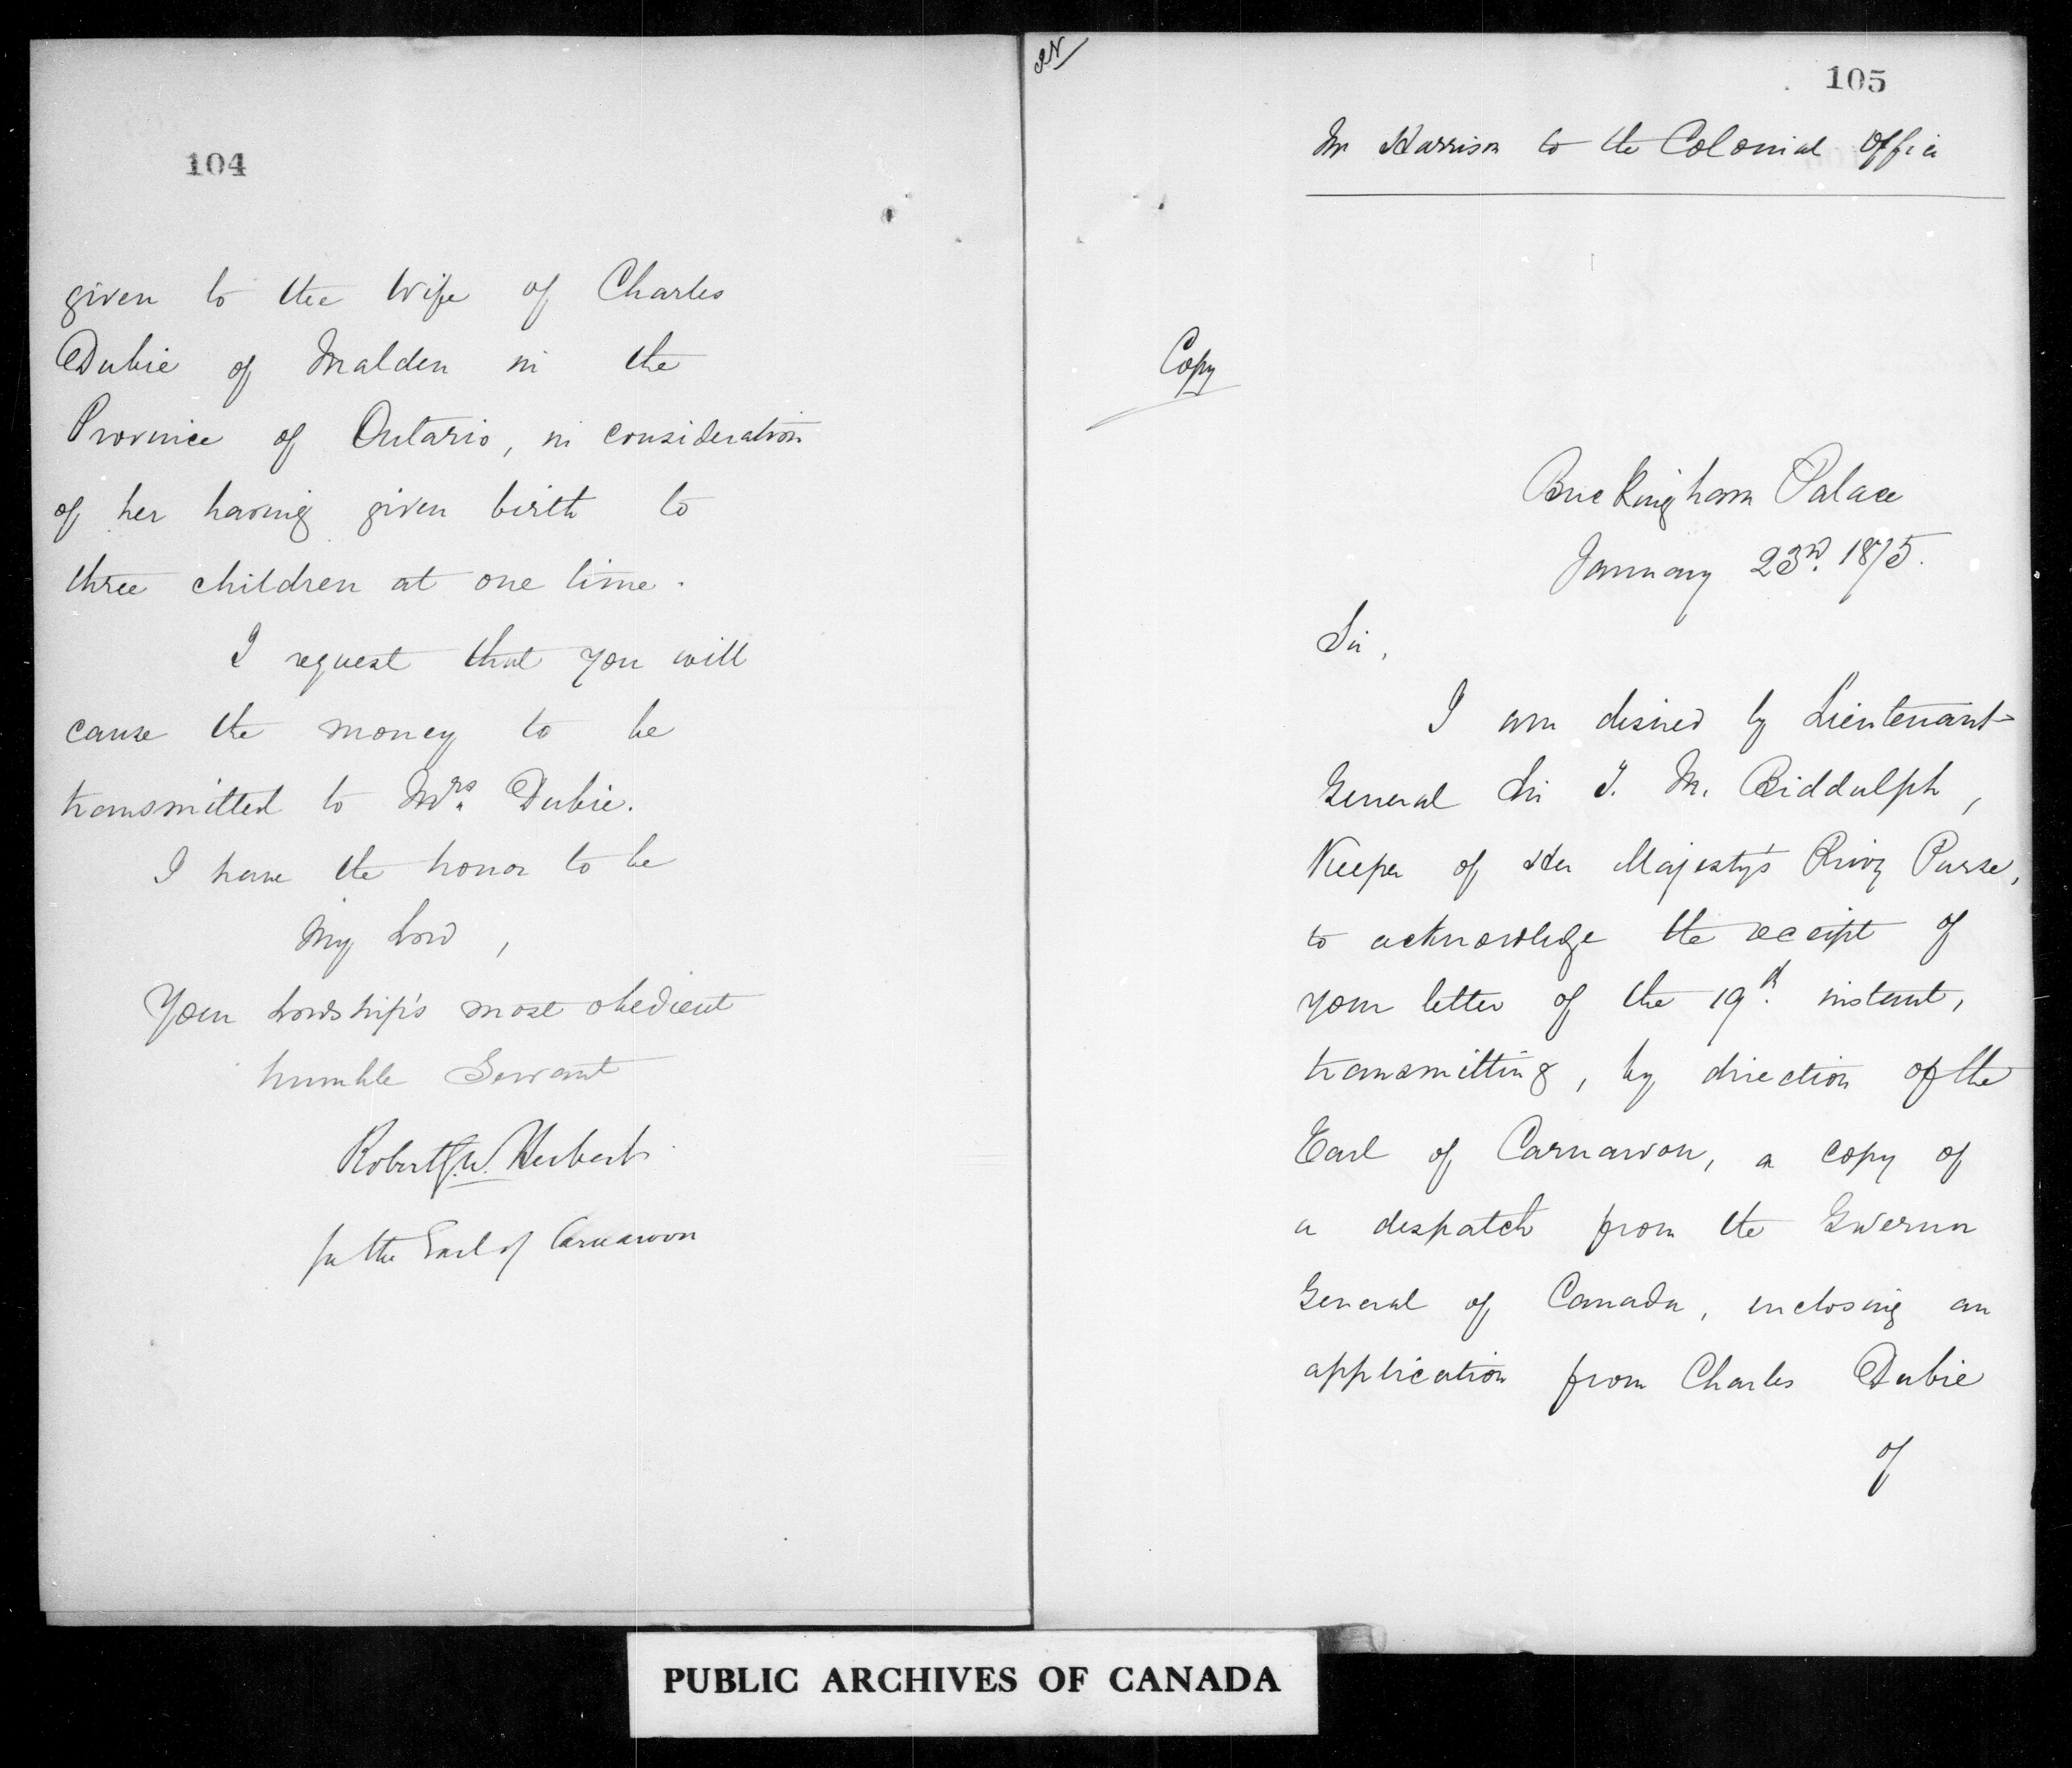 104
given to the Wife of Charles
Dubie of Malden in the
Province of Ontario, in consideration
of her having given birth to
three children at one time.
I request that you will
cause the money to be
transmitted to Mrs. Dubie.
I have the honor to be
My Lord,
Your Lordship's most obedient
humble Servant
Robert G. W. Herbert
for the Earl of Carnarvon
105
Mr Harrison to the Colonial Office
Copy
Buckingham Palace
January 23rd. 1875.
Sir,
I am desired by Lieutenant-
General Sir T. M. Biddulph,
Keeper of Her Majesty's Privy Purse,
to acknowledge the receipt of
your letter of the 19th. instant,
transmitting, by direction of the
Earl of Carnarvon, a copy of
a despatch from the Governor
General of Canada, inclosing an
application from Charles Dubie
of
PUBLIC ARCHIVES OF CANADA